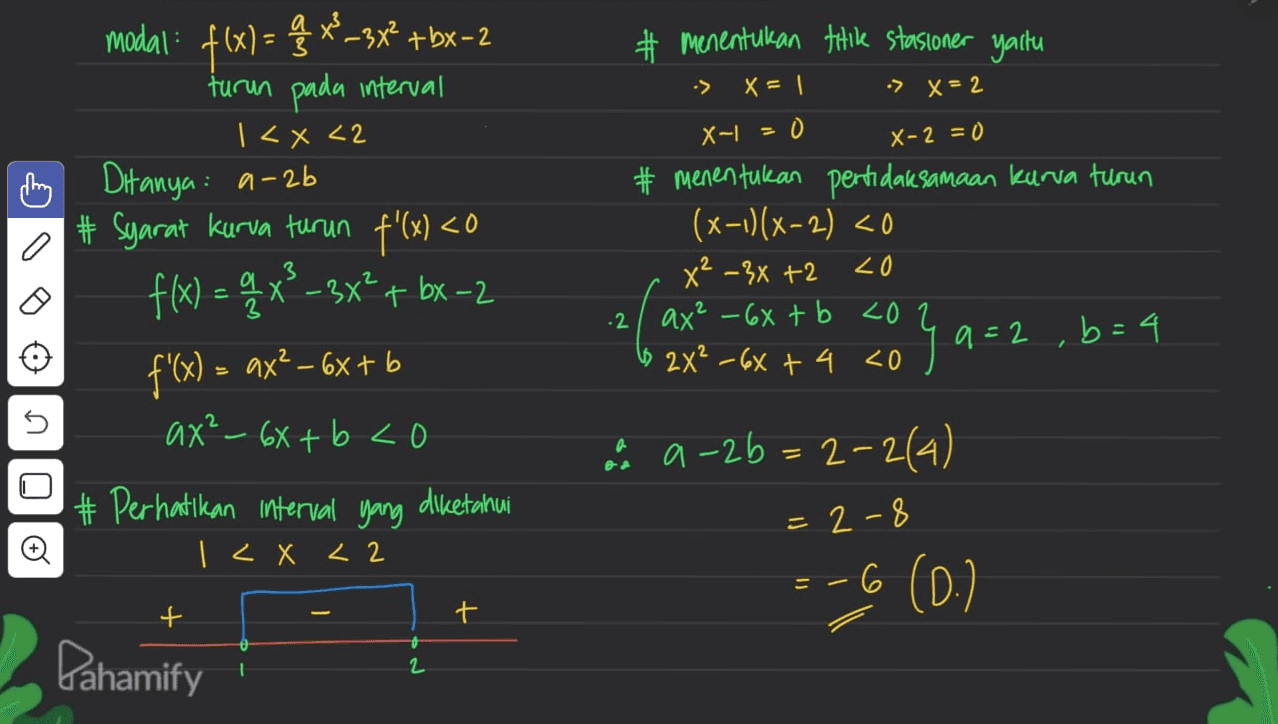 modal: f(x) = a/3 x³ - 3x² + bx - 2
turun pada interval
1 < x < 2
Ditanya: a - 2b
# Syarat kurva turun f'(x) < 0
f(x) = a/3 x³ - 3x² + bx - 2
f'(x) = ax² - 6x + b
ax² - 6x + b < 0
# Perhatikan interval yang diketahui
1 < x < 2
+ - +
1 2
Pahamify
# menentukan titik stasioner yaitu
·> x = 1 ·> x = 2
x-1 = 0 x-2 = 0
# menentukan pertidaksamaan kurva turun
(x-1)(x-2) < 0
x² - 3x + 2 < 0
·2 ax² - 6x + b < 0
2x² - 6x + 4 < 0 } a = 2, b = 4
∴ a - 2b = 2 - 2(4)
= 2 - 8
= -6 (D.)